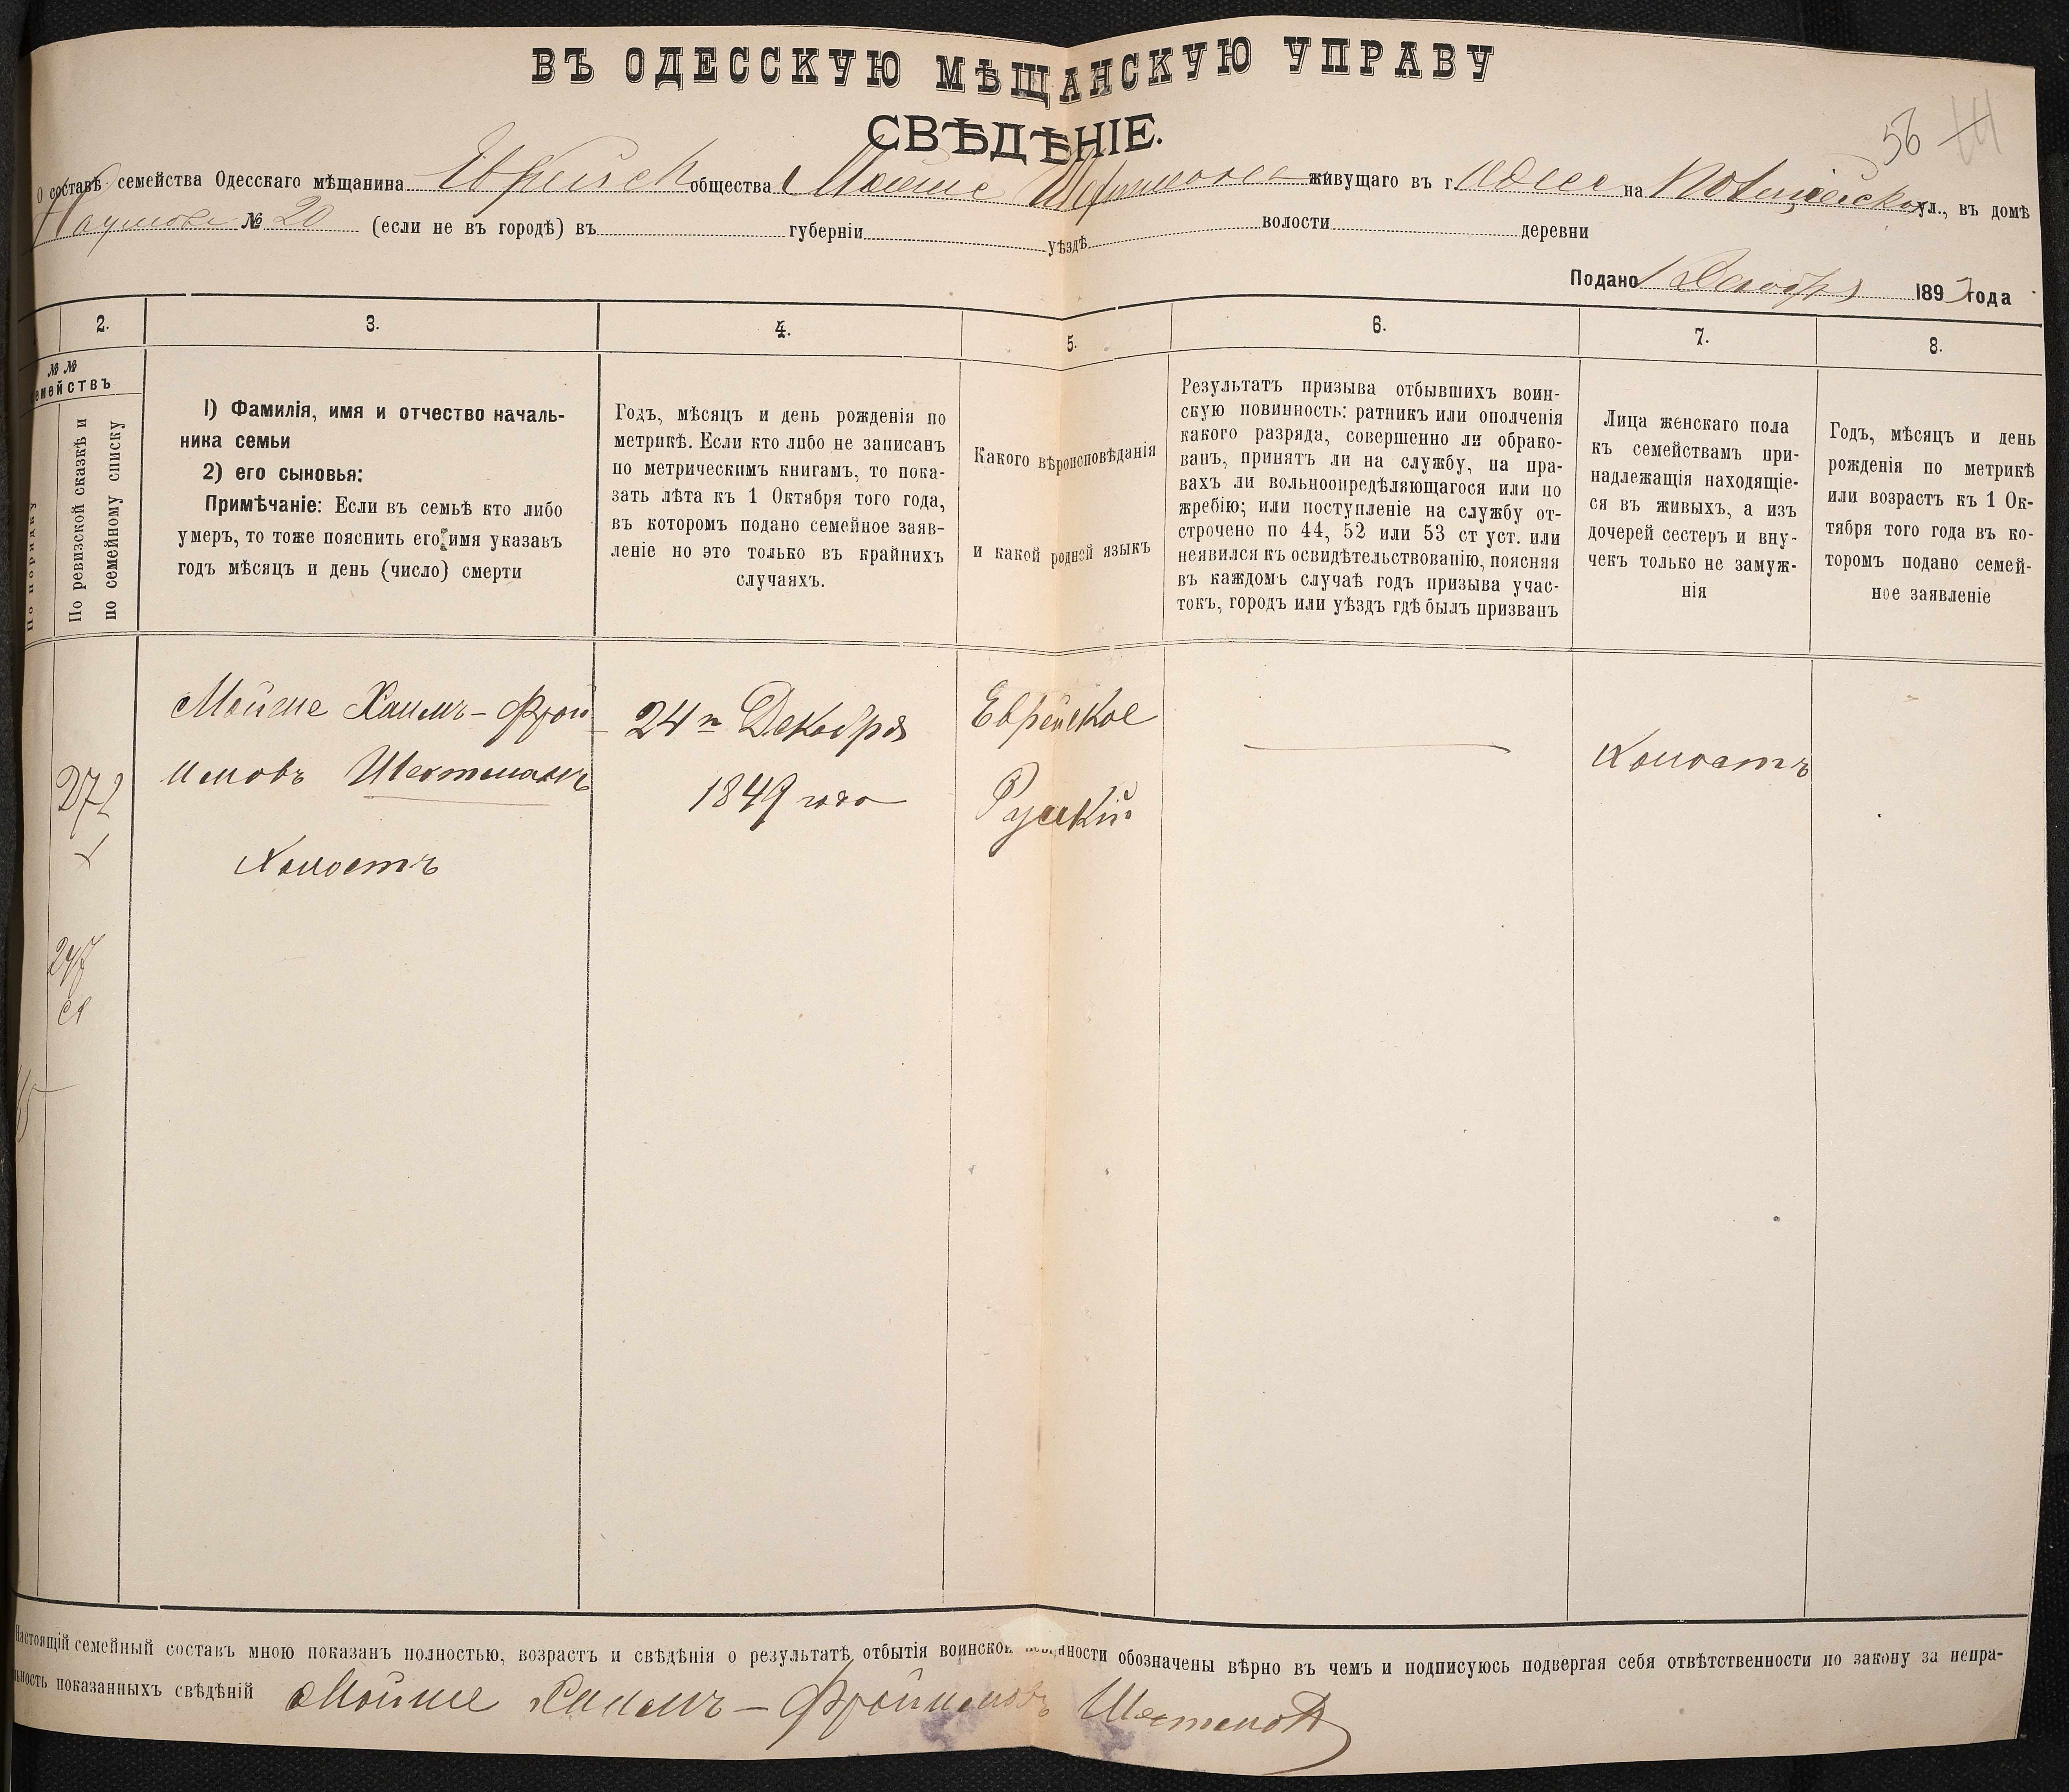 ВЪ ОДЕССКУЮ МѢЩАНСКУЮ УПРАВУ
СВѢДѢНІЕ.
56
О составѣ семейства Одесскаго мѣщанина Еврейск общества Мойше живущаго въ г Одессе на Полицейской ул., въ домѣ
Наумова № 20 (если не въ городѣ) въ губерніи уѣздѣ волости деревни
Подано 1 Декабря 189 года
2. 3. 4. 5. 6. 7. 8.
№ №
семействъ
По порядку
По ревизской сказкѣ и
по семейному списку
1) Фамилія, имя и отчество началь-
ника семьи
2) его сыновья:
Примѣчаніе: Если въ семьѣ кто либо
умеръ, то тоже пояснить его имя указавъ
годъ мѣсяцъ и день (число) смерти
Годъ, мѣсяцъ и день рожденія по
метрикѣ. Если кто либо не записанъ
по метрическимъ книгамъ, то пока-
зать лѣта къ 1 Октября того года,
въ которомъ подано семейное заяв-
леніе но это только въ крайнихъ
случаяхъ.
Какого вѣроисповѣданія
и какой родной языкъ
Результатъ призыва отбывшихъ воин-
скую повинность: ратникъ или ополченія
какого разряда, совершенно ли обрако-
ванъ, принятъ ли на службу, на пра-
вахъ ли вольноопредѣляющагося или по
жребію; или поступленіе на службу от-
строчено по 44, 52 или 53 ст уст. или
неявился къ освидѣтельствованію, поясняя
въ каждомъ случаѣ годъ призыва учас-
токъ, городъ или уѣздъ гдѣ былъ призванъ
Лица женскаго пола
къ семействамъ при-
надлежащія находящіе-
ся въ живыхъ, а изъ
дочерей сестеръ и вну-
чекъ только не замуж-
нія
Годъ, мѣсяцъ и день
рожденія по метрикѣ
или возрастъ къ 1 Ок-
тября того года въ ко-
торомъ подано семей-
ное заявленіе
272
247
Мойше Хаимъ-Фрой
имовъ Шехтманъ
Холостъ
24го Декабря
1849 года
Еврейское
Руский
Холостъ
Настоящій семейный составъ мною показанъ полностью, возрастъ и свѣдѣнія о результатѣ отбытія воинской повинности обозначены вѣрно въ чемъ и подписуюсь подвергая себя отвѣтственности по закону за непра-
вильность показанныхъ свѣдѣній Мойше Хаимъ-Фроймовъ Шехтман